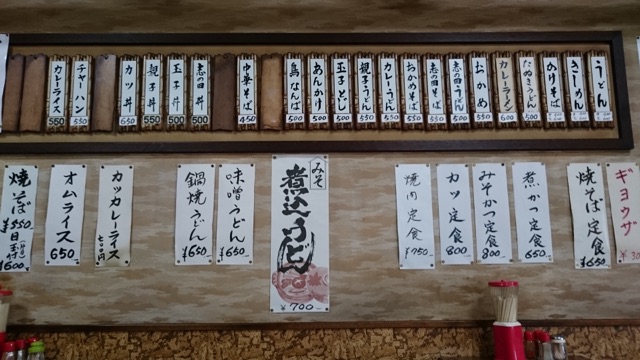 うどん
きしめん
かけそば
たぬきうどん
カレーラーメン 600
おかめ 550
志の田うどん 500
志の田そば 500
おかめそば 550
カレーうどん 550
親子うどん 550
玉子とじ 500
あんかけ 500
鳥なんば 500
中華そば 450
志の田丼 500
玉子丼 500
親子丼 550
カツ丼 650
チャーハン 550
カレーライス 550
ギョウザ
焼そば定食
¥650
煮かつ定食
650
みそかつ定食
800
カツ定食
800
焼肉定食
¥750
みそ
煮込うどん
¥700
味噌うどん
¥650
鍋焼うどん
¥650
カツカレーライス
七百円
オムライス
650
焼そば
¥550
目玉付
¥600